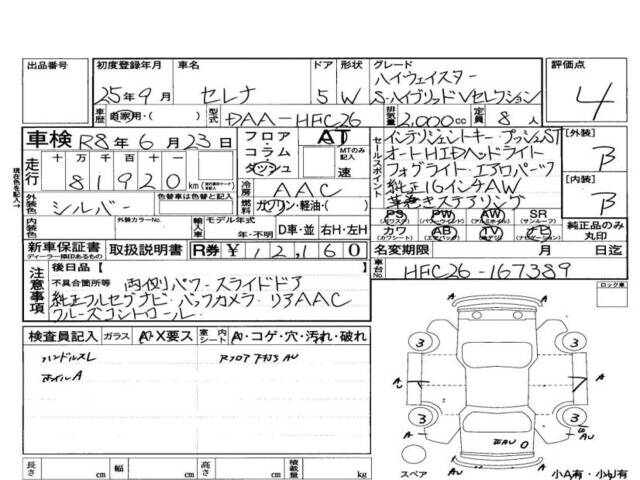 出品番号 初度登録年月 車名 ドア 形状 グレード 評価点
25年9月 セレナ 5 W ハイウェイスター
S-ハイブリッドVセレクション 4
車歴 自家用・( ) 型式 DAA-HFC26 排気量 2,000cc 定員 8人
車検 R8年6月23日 フロア・コラム・ダッシュ AT MTのみ記入 速
セールスポイント インテリジェントキー・プッシュST [外装] B
オートHIDヘッドライト
フォグライト・エアロパーツ [内装] B
純正16インチAW
革巻きステアリング
現在色を記入→
走行 十万千百十一
81920km
冷房 AAC
外装色 シルバー 色替車は色替と記入 燃料 ガソリン・軽油・( )
PS パワステ PW (パワーウインド) AW (アルミホイル) SR (サンルーフ) 純正品のみ丸印
カワ (カワシート) AB (エアバック) TV ナビ
内装色 外装カラーNo. 輸入車 モデル年式 年・不明 D車・並 右H・左H
新車保証書 ディーラー様印あるもの 取扱説明書 R券 ¥12,160 名変期限 月 日迄
車台No. HFC26-167389
注意事項 後日品【
不具合箇所等 両側パワースライドドア
純正フルセグナビ・バックカメラ・リアAAC
クルーズコントロール
ロック車
検査員記入 ガラス A・X要ス 室内シート A・コゲ・穴・汚れ・破れ
ハンドルスレ
ホイルA
A A
3 3
A A
3 3
A
スペア
長さ cm 幅 cm 高さ cm 積載量 kg
小A有・小U有